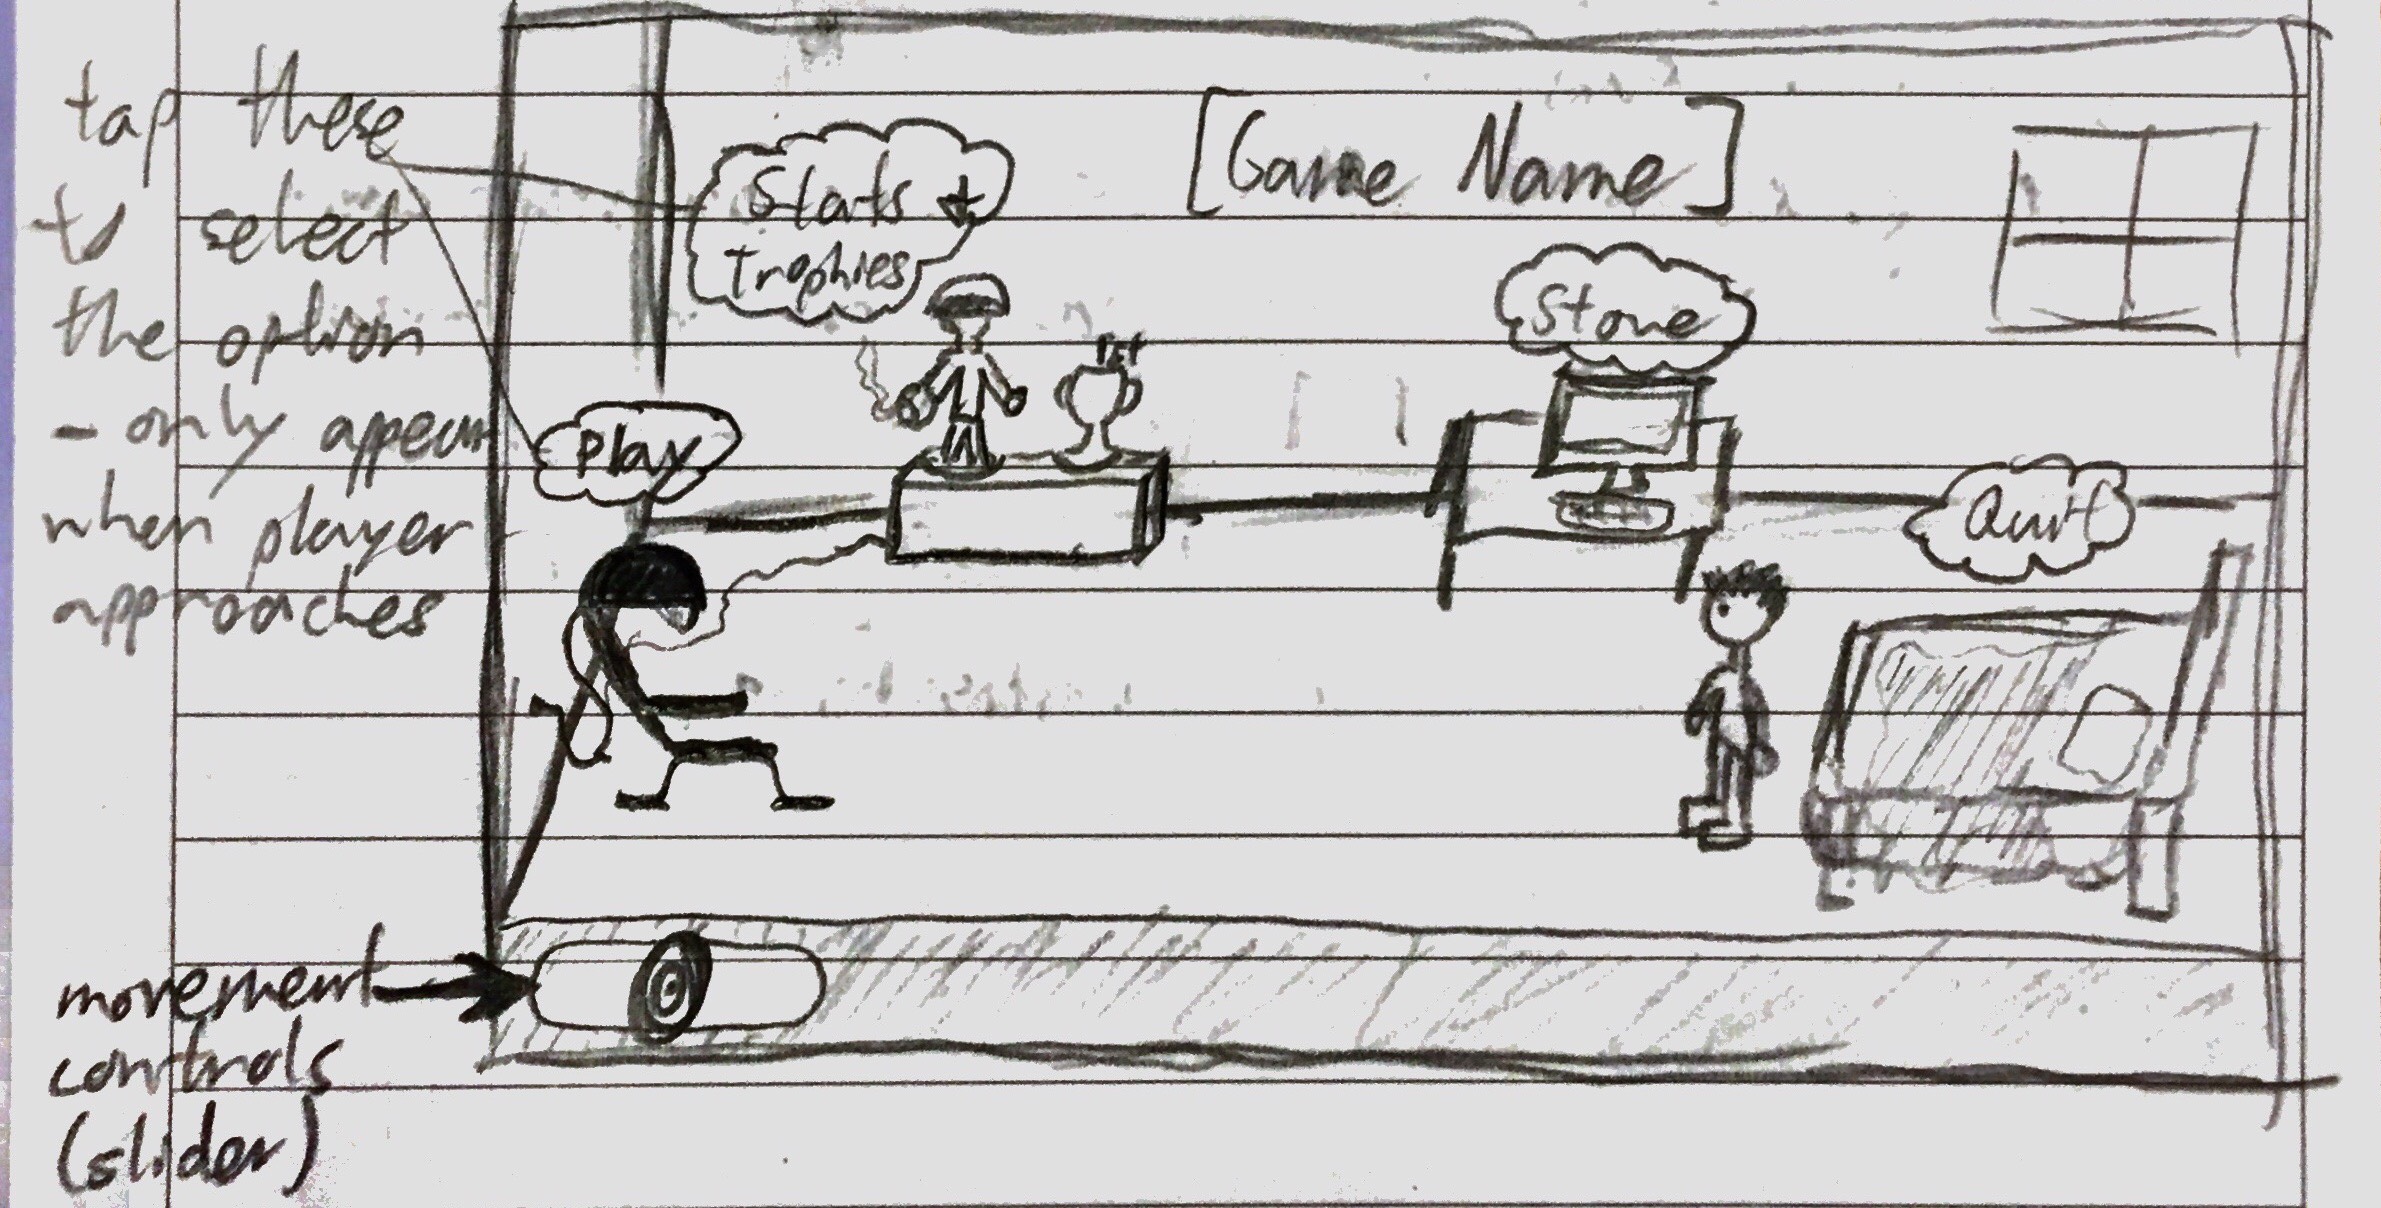 tap these
to select
the option
- only appear
when player
approaches
[Game Name]
Stats +
Trophies
Store
Play
Quit
movement
controls
(slider)